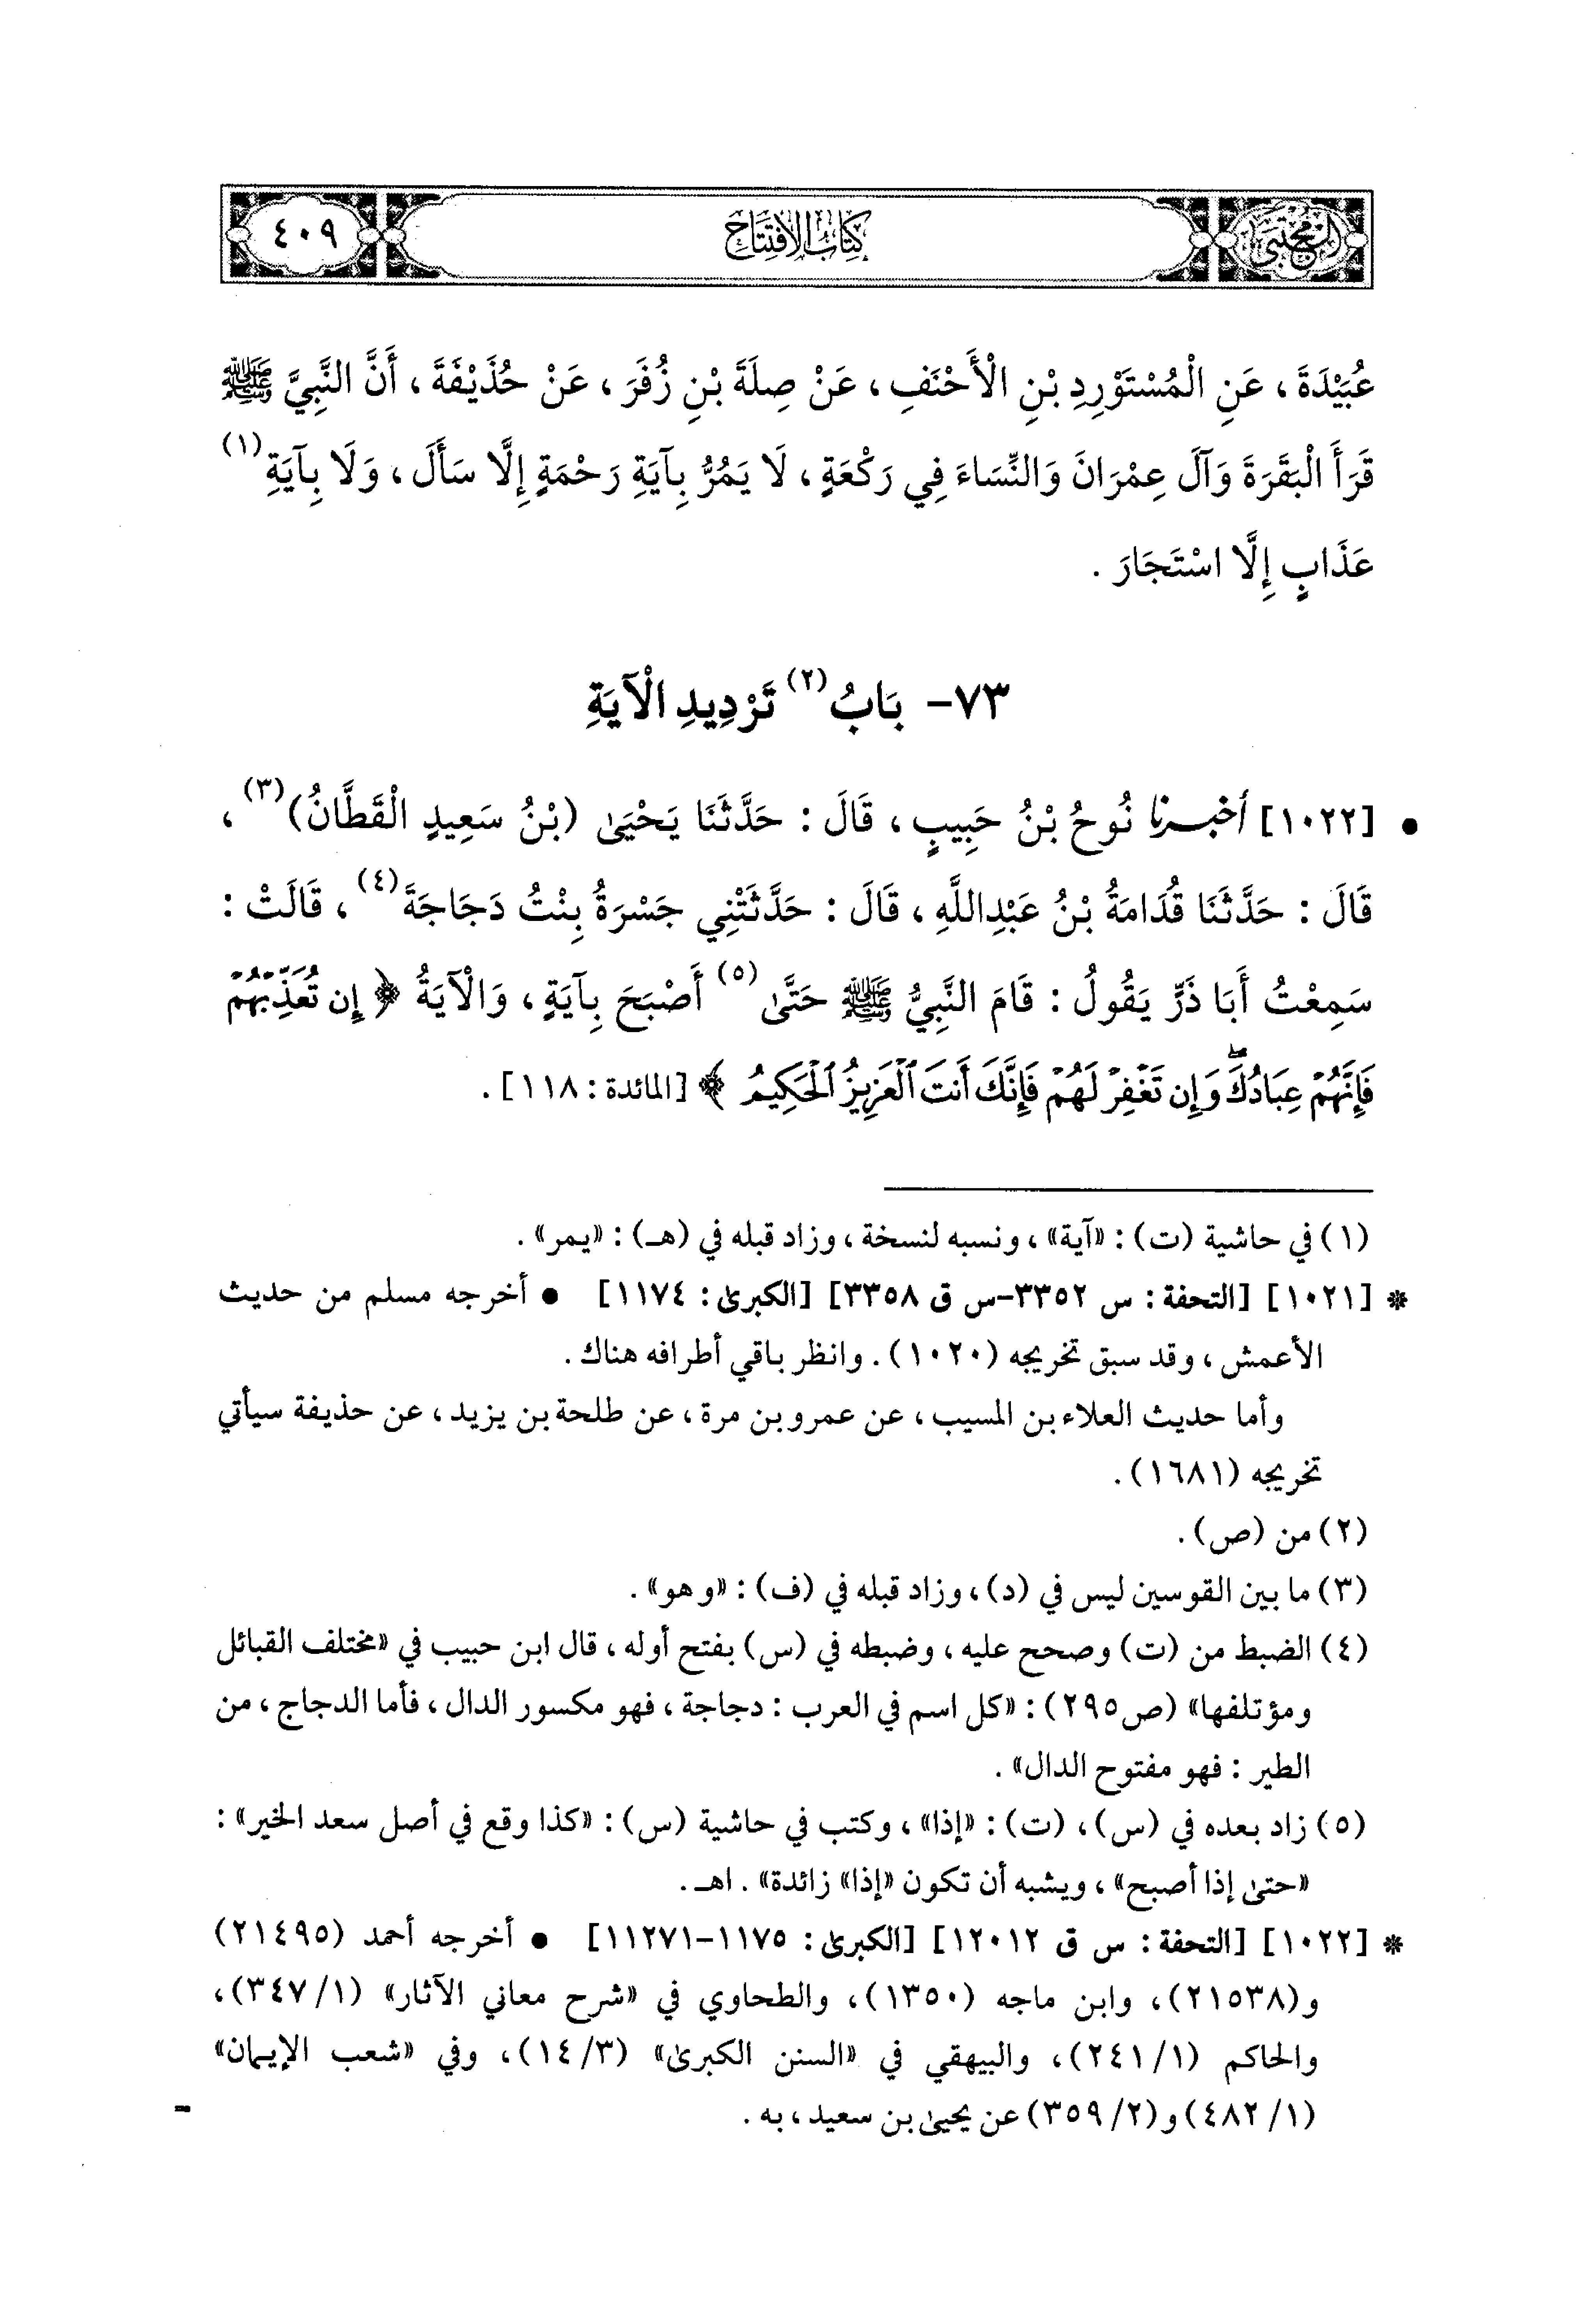 المجتبى
كتاب الافتتاح
٤٠٩
عُبَيْدَةَ ، عَنِ الْمُسْتَوْرِدِ بْنِ الْأَحْنَفِ ، عَنْ صِلَةَ بْنِ زُفَرَ ، عَنْ حُذَيْفَةَ ، أَنَّ النَّبِيَّ ﷺ
قَرَأَ الْبَقَرَةَ وَآلَ عِمْرَانَ وَالنِّسَاءَ فِي رَكْعَةٍ ، لَا يَمُرُّ بِآيَةِ رَحْمَةٍ إِلَّا سَأَلَ ، وَلَا بِآيَةِ(١)
عَذَابٍ إِلَّا اسْتَجَارَ .
٧٣- بَابُ(٢) تَرْدِيدِ الْآيَةِ
• [١٠٢٢] أخبرنا نُوحُ بْنُ حَبِيبٍ ، قَالَ : حَدَّثَنَا يَحْيَىٰ (بْنُ سَعِيدٍ الْقَطَّانُ)(٣) ،
قَالَ : حَدَّثَنَا قُدَامَةُ بْنُ عَبْدِاللَّهِ ، قَالَ : حَدَّثَتْنِي جَسْرَةُ بِنْتُ دَجَاجَةَ(٤) ، قَالَتْ :
سَمِعْتُ أَبَا ذَرٍّ يَقُولُ : قَامَ النَّبِيُّ ﷺ حَتَّىٰ(٥) أَصْبَحَ بِآيَةٍ ، وَالْآيَةُ ﴿ إِن تُعَذِّبْهُمْ
فَإِنَّهُمْ عِبَادُكَۖ وَإِن تَغْفِرْ لَهُمْ فَإِنَّكَ أَنتَ ٱلْعَزِيزُ ٱلْحَكِيمُ ﴾ [المائدة : ١١٨] .
(١) في حاشية (ت) : «آية» ، ونسبه لنسخة ، وزاد قبله في (هـ) : «يمر» .
* [١٠٢١] [التحفة : س ٣٣٥٢-س ق ٣٣٥٨] [الكبرىٰ : ١١٧٤] • أخرجه مسلم من حديث
الأعمش ، وقد سبق تخريجه (١٠٢٠) . وانظر باقي أطرافه هناك .
وأما حديث العلاء بن المسيب ، عن عمرو بن مرة ، عن طلحة بن يزيد ، عن حذيفة سيأتي
تخريجه (١٦٨١) .
(٢) من (ص) .
(٣) ما بين القوسين ليس في (د) ، وزاد قبله في (ف) : «وهو» .
(٤) الضبط من (ت) وصحح عليه ، وضبطه في (س) بفتح أوله ، قال ابن حبيب في «مختلف القبائل
ومؤتلفها» (ص٢٩٥) : «كل اسم في العرب : دجاجة ، فهو مكسور الدال ، فأما الدجاج ، من
الطير : فهو مفتوح الدال» .
(٥) زاد بعده في (س) ، (ت) : «إذا» ، وكتب في حاشية (س) : «كذا وقع في أصل سعد الخير» :
«حتىٰ إذا أصبح» ، ويشبه أن تكون «إذا» زائدة» . اهـ .
* [١٠٢٢] [التحفة : س ق ١٢٠١٢] [الكبرىٰ : ١١٧٥-١١٢٧١] • أخرجه أحمد (٢١٤٩٥)
و(٢١٥٣٨) ، وابن ماجه (١٣٥٠) ، والطحاوي في «شرح معاني الآثار» (١/ ٣٤٧) ،
والحاكم (١/ ٢٤١) ، والبيهقي في «السنن الكبرىٰ» (٣/ ١٤) ، وفي «شعب الإيمان»
(١/ ٤٨٢) و(٢/ ٣٥٩) عن يحيىٰ بن سعيد ، به .